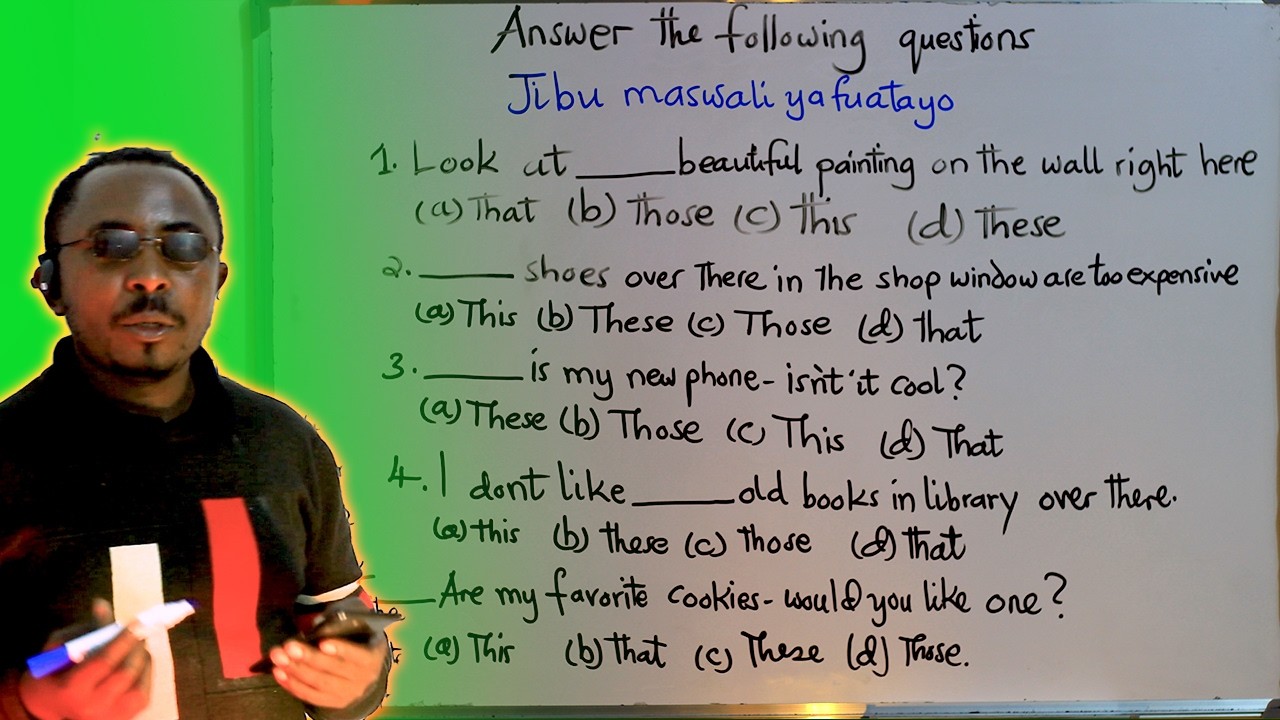 Answer the following questions
Jibu maswali yafuatayo
1. Look at ____ beautiful painting on the wall right here
(a) That (b) Those (c) This (d) These
2. ____ shoes over There in The shop window are too expensive
(a) This (b) These (c) Those (d) that
3. ____ is my new phone - isn't it cool?
(a) These (b) Those (c) This (d) That
4. I dont like ____ old books in library over there.
(a) this (b) these (c) those (d) that
____ Are my favorite cookies - would you like one?
(a) This (b) that (c) These (d) Those.